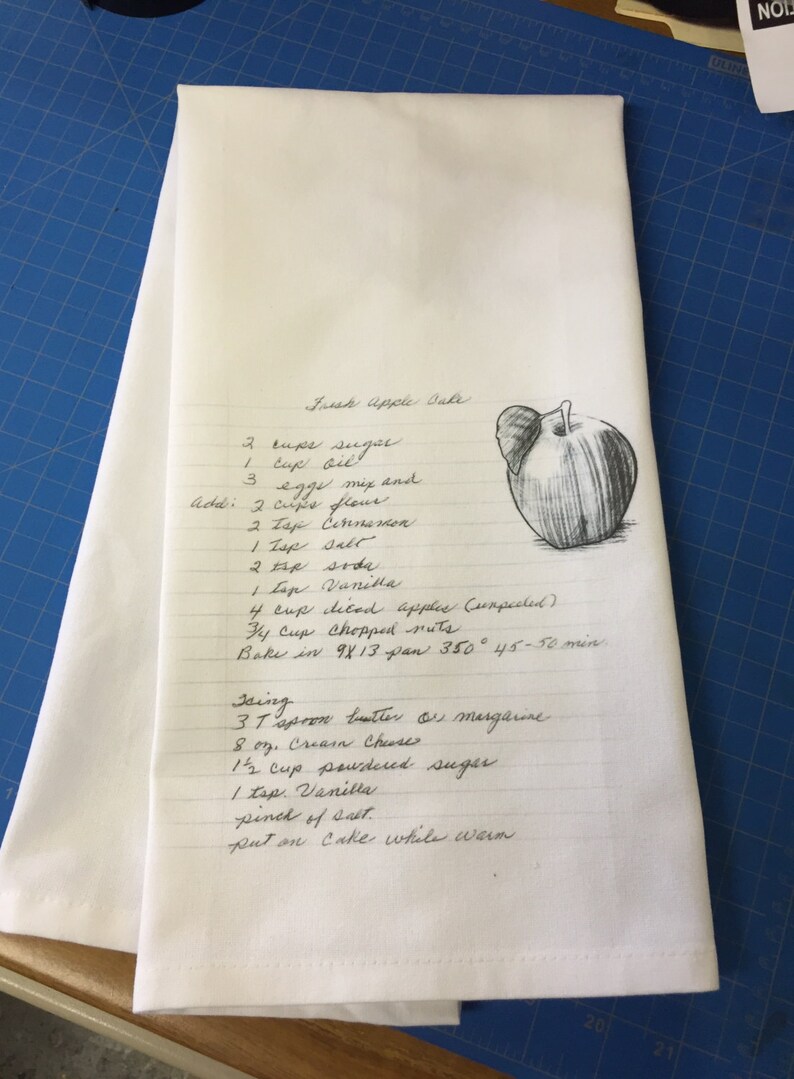 NOIT
ULINE
Fresh Apple Cake
2 cups sugar
1 cup oil
3 eggs mix and
add: 2 cups flour
2 tsp Cinnamon
1 tsp salt
2 tsp soda
1 tsp Vanilla
4 cup diced apples (unpeeled)
3/4 cup chopped nuts
Bake in 9X13 pan 350° 45-50 min.
Icing
3 T spoon butter or margarine
8 oz. Cream Cheese
1 1/2 cup powdered sugar
1 tsp. Vanilla
pinch of salt.
put on Cake while warm
20
21